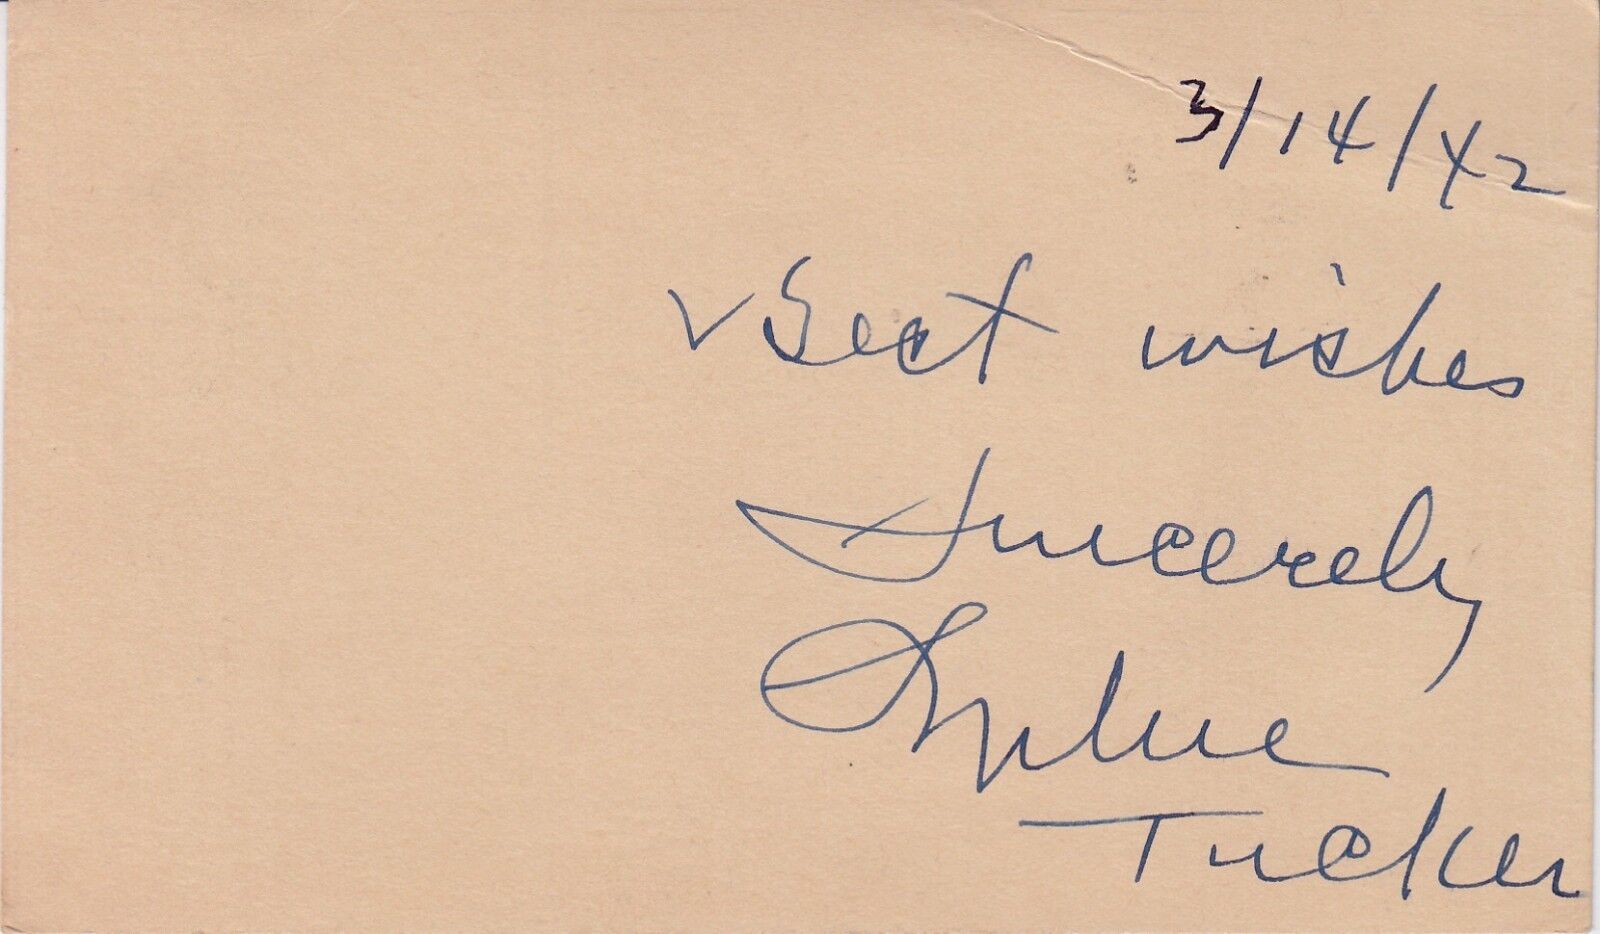 3/14/42
Best wishes
Sincerely
Sophie
Tucker